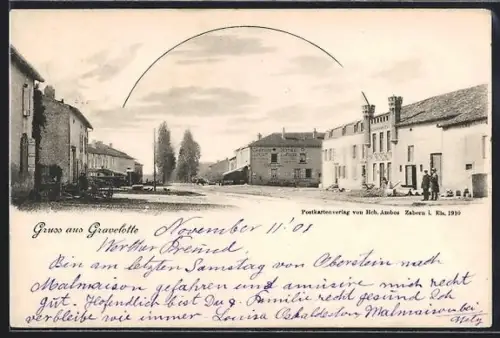 Gruss aus Gravelotte
Postkartenverlag von Hch. Ambos Zabern i. Els. 1910
November 11.' 01
Werther Freund.
Bin am letzten Samstag von Oberstein nach
Malmaison gefahren und amüsire mich recht
gut. Hoffendlich bist Du & Familie recht gesund Ich
verbleibe wie immer Louisa Malmaison bei
Metz